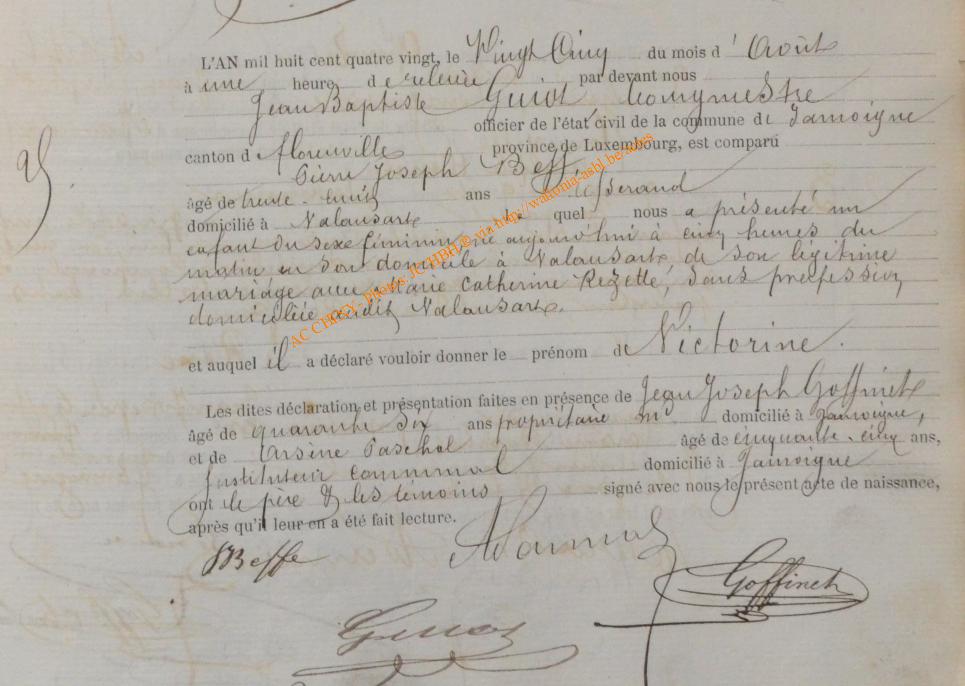 L'AN mil huit cent quatre vingt, le Vingt Cinq du mois d'Août
à une heure de relevée par devant nous
Jean Baptiste Guiot Bourgmestre
officier de l'état civil de la commune de Jamoigne
canton de Florenville province de Luxembourg, est comparu
Pierre Joseph Beffe
âgé de trente-huit ans tisserand
domicilié à Valansart lequel nous a présenté un
enfant du sexe féminin né aujourd'hui à cinq heures du
matin en son domicile à Valansart, de son légitime
mariage avec Marie Catherine Rezette, sans profession,
domiciliée audit Valansart.
et auquel il a déclaré vouloir donner le prénom de Victorine.
Les dites déclaration et présentation faites en présence de Jean Joseph Goffinet
âgé de quarante six ans propriétaire domicilié à Jamoigne,
et de Arsène Paschal âgé de cinquante-cinq ans,
Instituteur communal domicilié à Jamoigne
ont le père & les témoins signé avec nous le présent acte de naissance,
après qu'il leur en a été fait lecture.
Beffe
Goffinet
Guiot
AC CHINY - Photos JCHBH © via http://wallonia-asbl.be-actes